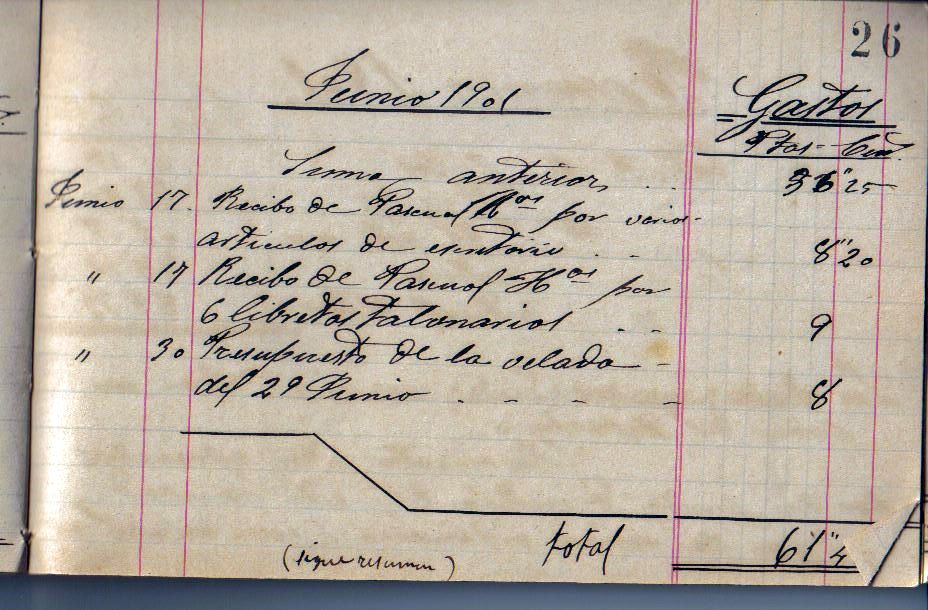 26
Junio 1901
Gastos
Ptas - Cén.
Suma anterior . . . 36"25
Junio 17. Recibo de Pascual Hos por varios-
articulos de escritorio . . . 8"20
" 17 Recibo de Pascual Hos por
6 libretas talonarios . . 9
" 30 Presupuesto de la velada -
del 29 Junio . - - - - 8
total 61"4
(sigue resumen)